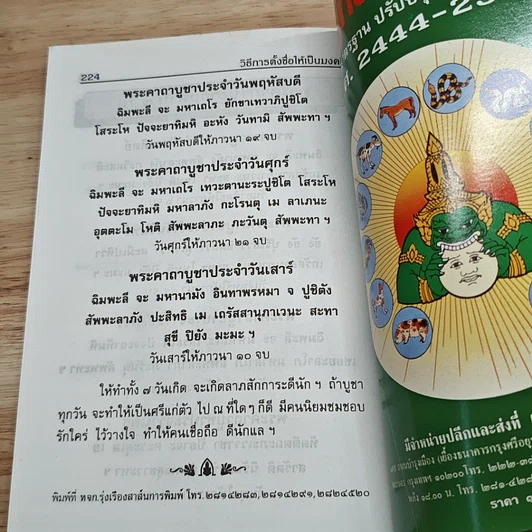 224
วิธีการตั้งชื่อให้เป็นมงคล
พระคาถาบูชาประจำวันพฤหัสบดี
ฉิมพะลี จะ มหาเถโร ยักขาเทวาภิปูชิโต
โสระโห ปัจจะยาทิมหิ อะหัง วันทามิ สัพพะทา ฯ
วันพฤหัสบดีให้ภาวนา ๑๙ จบ
พระคาถาบูชาประจำวันศุกร์
ฉิมพะลี จะ มหาเถโร เทวะตานะระปูชิโต โสระโห
ปัจจะยาทิมหิ มหาลาภัง กะโรนตุ เม ลาเภนะ
อุตตะโม โหติ สัพพะลาภะ ภะวันตุ สัพพะทา ฯ
วันศุกร์ให้ภาวนา ๒๑ จบ
พระคาถาบูชาประจำวันเสาร์
ฉิมพะลี จะ มหานามัง อินทาพรหมา จ ปูชิตัง
สัพพะลาภัง ปะสิทธิ เม เถรัสสานุภาเวนะ สะทา
สุขี ปิยัง มะมะ ฯ
วันเสาร์ให้ภาวนา ๑๐ จบ
ให้ทำทั้ง ๗ วันเกิด จะเกิดลาภสักการะดีนัก ฯ ถ้าบูชา
ทุกวัน จะทำให้เป็นศรีแก่ตัว ไป ณ ที่ใด ๆ ก็ดี มีคนนิยมชมชอบ
รักใคร่ ไว้วางใจ ทำให้คนเชื่อถือ ดีนักแล ฯ
พิมพ์ที่ หจก.รุ่งเรืองสาส์นการพิมพ์ โทร.๒๘๑๔๒๘๓,๒๘๑๔๒๙๑,๒๘๒๔๕๒๐
ปรับปรุ
. 2444-25
มีจำหน่ายปลีกและส่งที่
ราคา